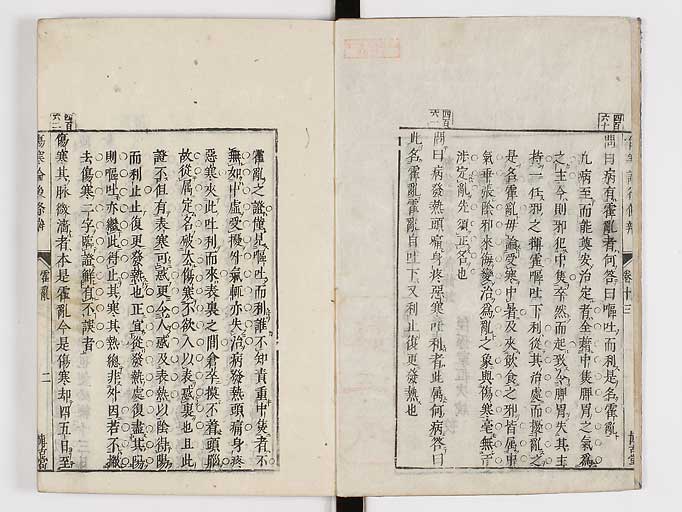 四百六十
問曰病有霍亂者何答曰嘔吐而利是名霍亂
凡病至而能奠安治定者全藉中隻胛胃之氣爲
之主今則邪犯中隻卒然而起致令胛胃失其主
持一任邪之揮霍嘔吐下利從其治處而擾亂之
是名霍亂毋論受寒中暑及夾飲食之邪皆属中
氣乖張陰邪來侮變治爲亂之象與傷寒毫無
涉定亂先須正名也
四百六一
問曰病發熱頭痛身疼惡寒吐利者此属何病答曰
此名霍亂霍亂自吐下又利止復更發熱也
卷十三
霍亂之證僅見嘔吐而利誰不知責重中隻者不
無如中虛受擾外氣輒亦失治病發熱頭痛身疼
惡寒夾此吐利而來表裏之間倉卒摸不着頭腦
故從属定名破去傷寒不欲人以表惑裏也且此
證不但有表寒可惑更令人惑及表熱以陰得陽
而利止止復更發熱也正宜從發熱處復盡其陽
則嘔吐亦繼此得止其寒其熱總非外因若不撇
去傷寒二字臨證鮮有不誤者
四百六二
傷寒其脉微濇者本是霍亂今是傷寒却四五日至
傷寒論後條辨
霍亂
二